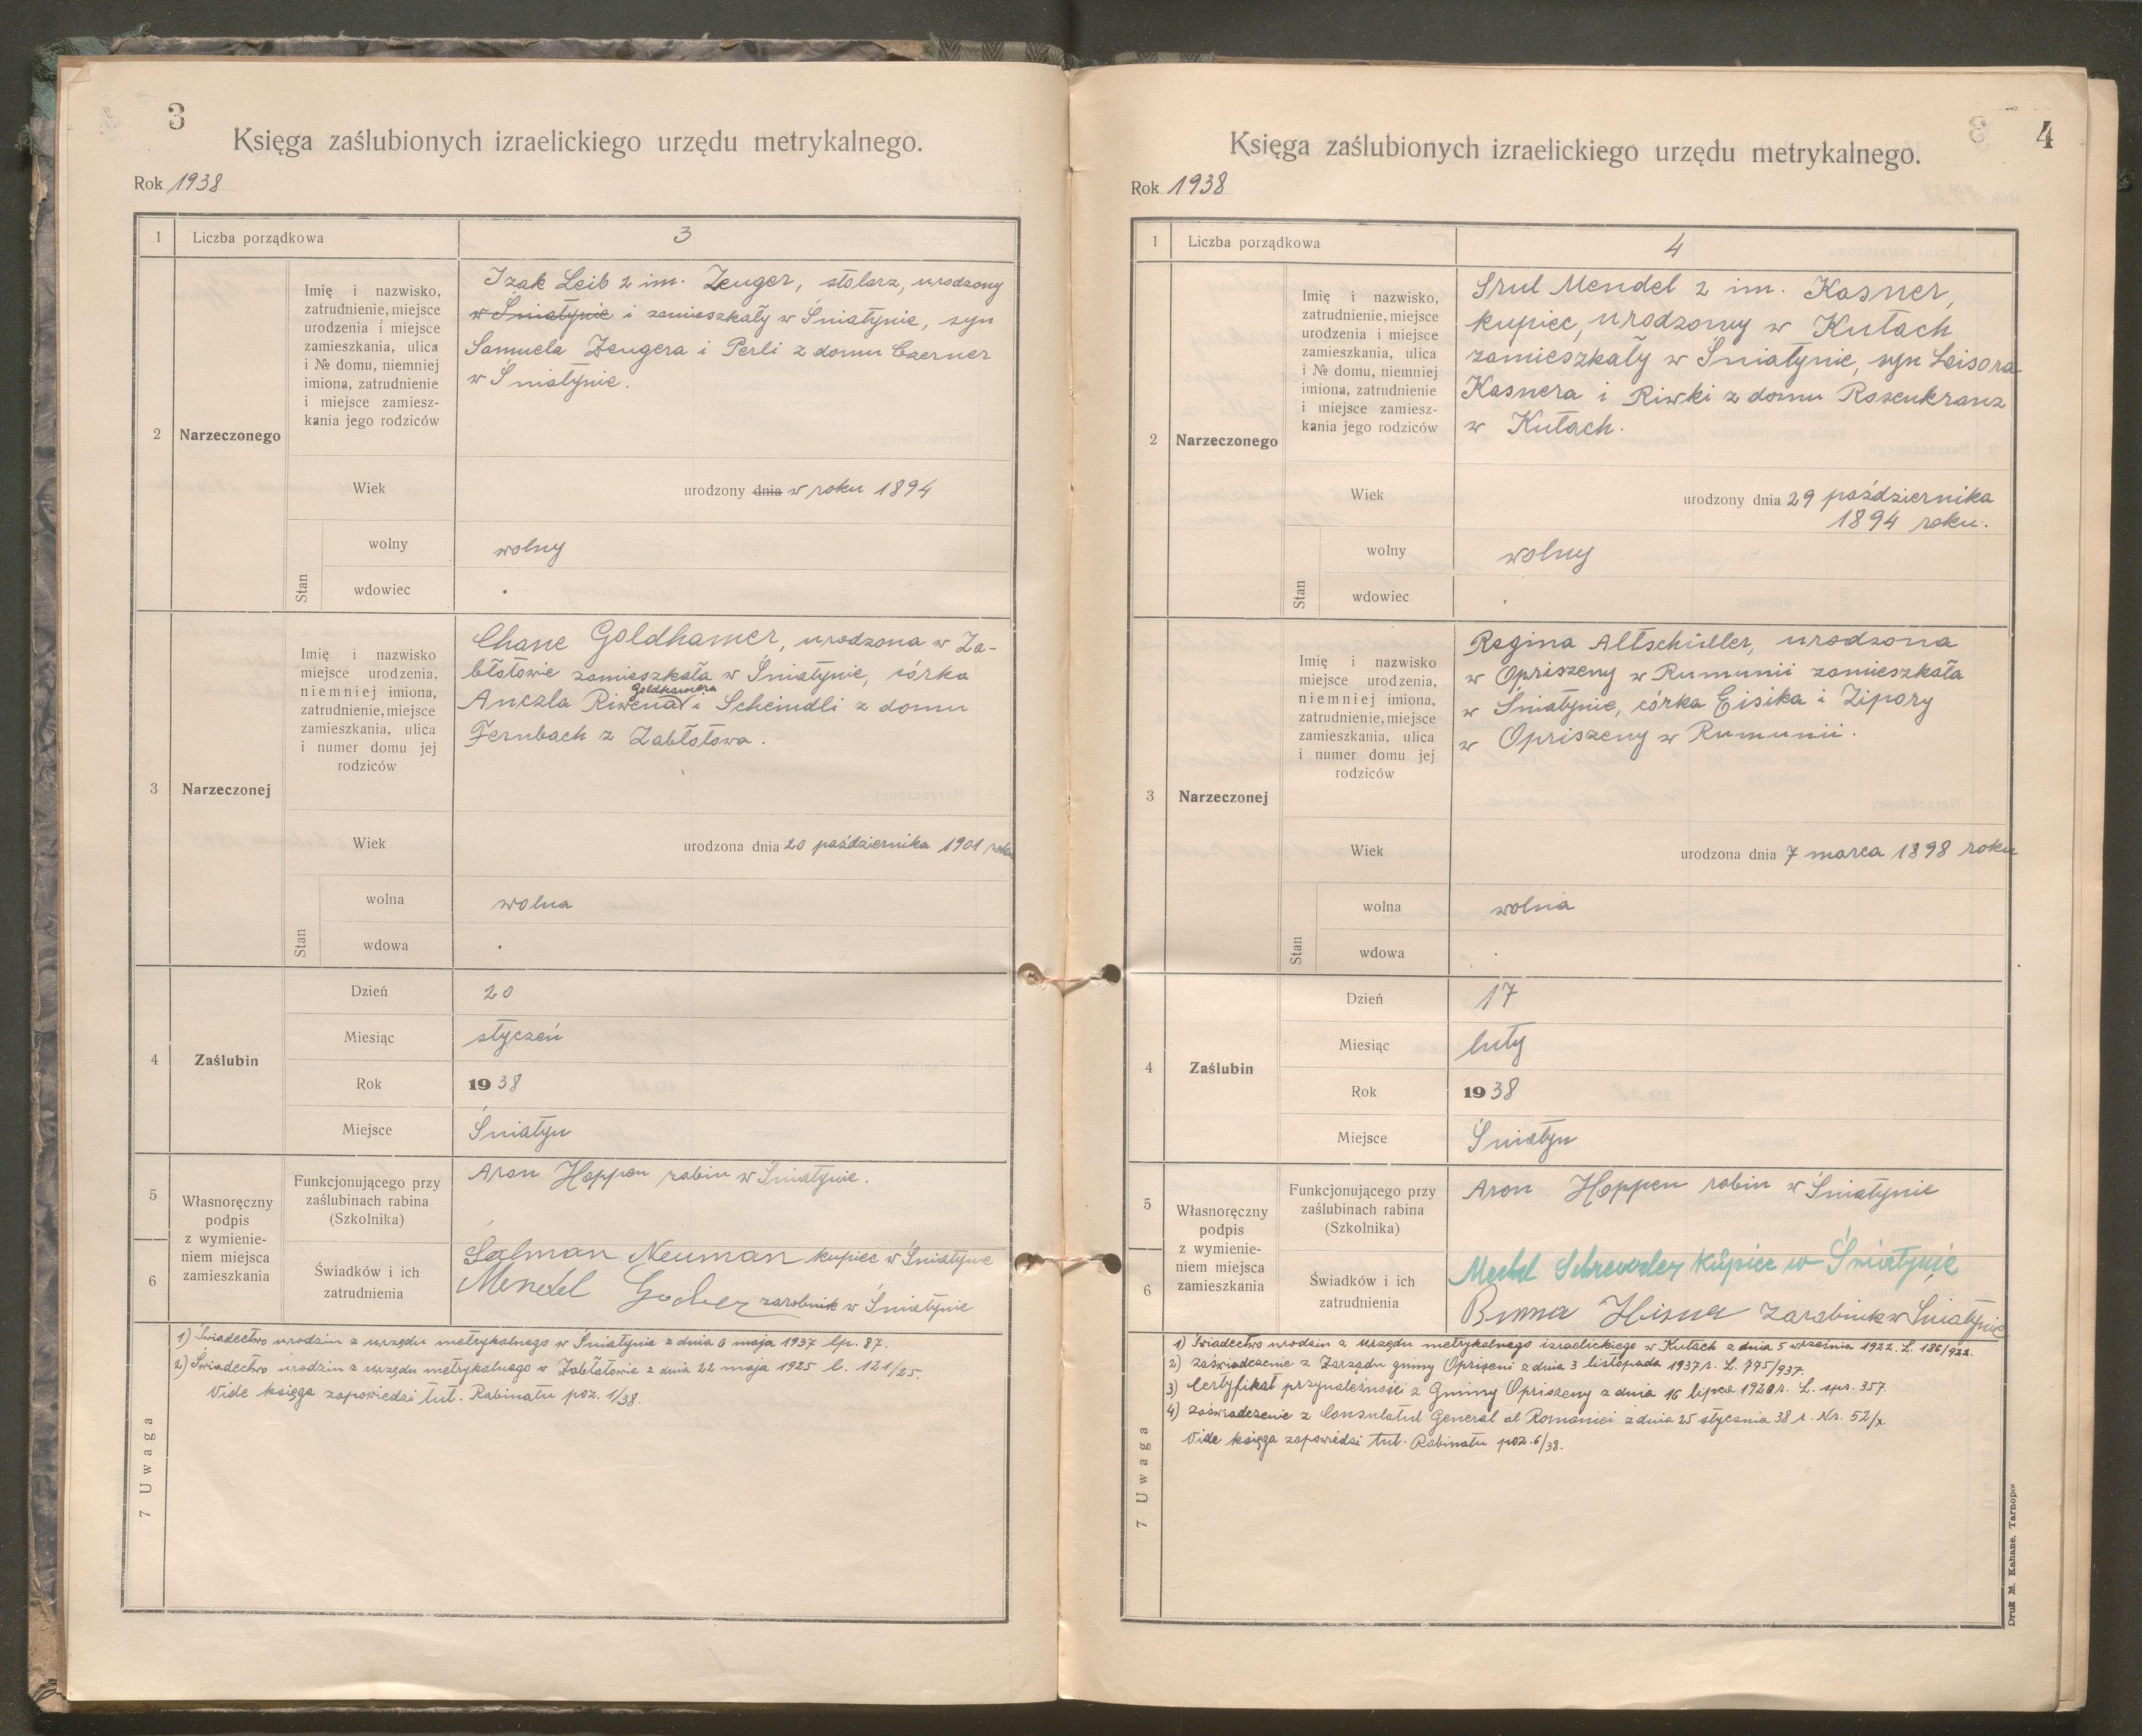 3
Księga zaślubionych izraelickiego urzędu metrykalnego.
Rok 1938
1 Liczba porządkowa 3
2 Narzeczonego
Imię i nazwisko,
zatrudnienie, miejsce
urodzenia i miejsce
zamieszkania, ulica
i № domu, niemniej
imiona, zatrudnienie
i miejsce zamiesz-
kania jego rodziców
Izak Leib 2 im. Zeuger, stolarz, urodzony
w Śniatynie i zamieszkały w Śniatynie, syn
Samuela Zeugera i Perli z domu Czerner
w Śniatynie.
Wiek urodzony dnia w roku 1894
Stan
wolny wolny
wdowiec .
3 Narzeczonej
Imię i nazwisko
miejsce urodzenia,
niemniej imiona,
zatrudnienie, miejsce
zamieszkania, ulica
i numer domu jej
rodziców
Chane Goldhamer, urodzona w Za-
błotowie zamieszkała w Śniatynie, córka
Goldhamera
Anczla Riwena i Scheindli z domu
Fernbach z Zabłotowa.
Wiek urodzona dnia 20 października 1901 roku
Stan
wolna wolna
wdowa .
4 Zaślubin
Dzień 20
Miesiąc styczeń
Rok 1938
Miejsce Śniatyn
5
6
Własnoręczny
podpis
z wymienie-
niem miejsca
zamieszkania
Funkcjonującego przy
zaślubinach rabina
(Szkolnika)
Aron Hoppen rabin w Śniatynie.
Świadków i ich
zatrudnienia
Salman Neuman kupiec w Śniatynie
Mendel zarobnik w Śniatynie
7 Uwaga
1) Świadectwo urodzin z urzędu metrykalnego w Śniatynie z dnia 6 maja 1937 lp. 87.
2) Świadectwo urodzin z urzędu metrykalnego w Zabłotowie z dnia 22 maja 1925 l. 121/25.
Vide księga zapowiedzi tut. Rabinatu poz. 1/38.
4
Księga zaślubionych izraelickiego urzędu metrykalnego.
Rok 1938
1 Liczba porządkowa 4
2 Narzeczonego
Imię i nazwisko,
zatrudnienie, miejsce
urodzenia i miejsce
zamieszkania, ulica
i № domu, niemniej
imiona, zatrudnienie
i miejsce zamiesz-
kania jego rodziców
Srul Mendel 2 im. Kasner,
kupiec, urodzony w Kutach
zamieszkały w Śniatynie, syn Leisora
Kasnera i Riwki z domu Rosenkranz
w Kutach.
Wiek urodzony dnia 29 października
1894 roku.
Stan
wolny wolny
wdowiec .
3 Narzeczonej
Imię i nazwisko
miejsce urodzenia,
niemniej imiona,
zatrudnienie, miejsce
zamieszkania, ulica
i numer domu jej
rodziców
Regina Altschüller, urodzona
w Opriszeny w Rumunii zamieszkała
w Śniatynie, córka Eisika i Zipory
w Opriszeny w Rumunii.
Wiek urodzona dnia 7 marca 1898 roku
Stan
wolna wolna
wdowa .
4 Zaślubin
Dzień 17
Miesiąc luty
Rok 1938
Miejsce Śniatyn
5
6
Własnoręczny
podpis
z wymienie-
niem miejsca
zamieszkania
Funkcjonującego przy
zaślubinach rabina
(Szkolnika)
Aron Hoppen rabin w Śniatynie
Świadków i ich
zatrudnienia
kupiec w Śniatynie
zarobnik w Śniatynie
7 Uwaga
1) Świadectwo urodzin z urzędu metrykalnego izraelickiego w Kutach z dnia 5 września 1922. L. 186/922.
2) zaświadczenie z Zarządu gminy Oprişeni z dnia 3 listopada 1937 r. L. 775/937.
3) Certyfikat przynależności z Gminy Opriszeny z dnia 16 lipca 1920 r. L. spr. 357.
4) zaświadczenie z Consulatul General al Romaniei z dnia 25 stycznia 38 r. Nr. 52/x.
Vide księga zapowiedzi tut. Rabinatu poz. 6/38.
Druk M. Kahane, Tarnopol